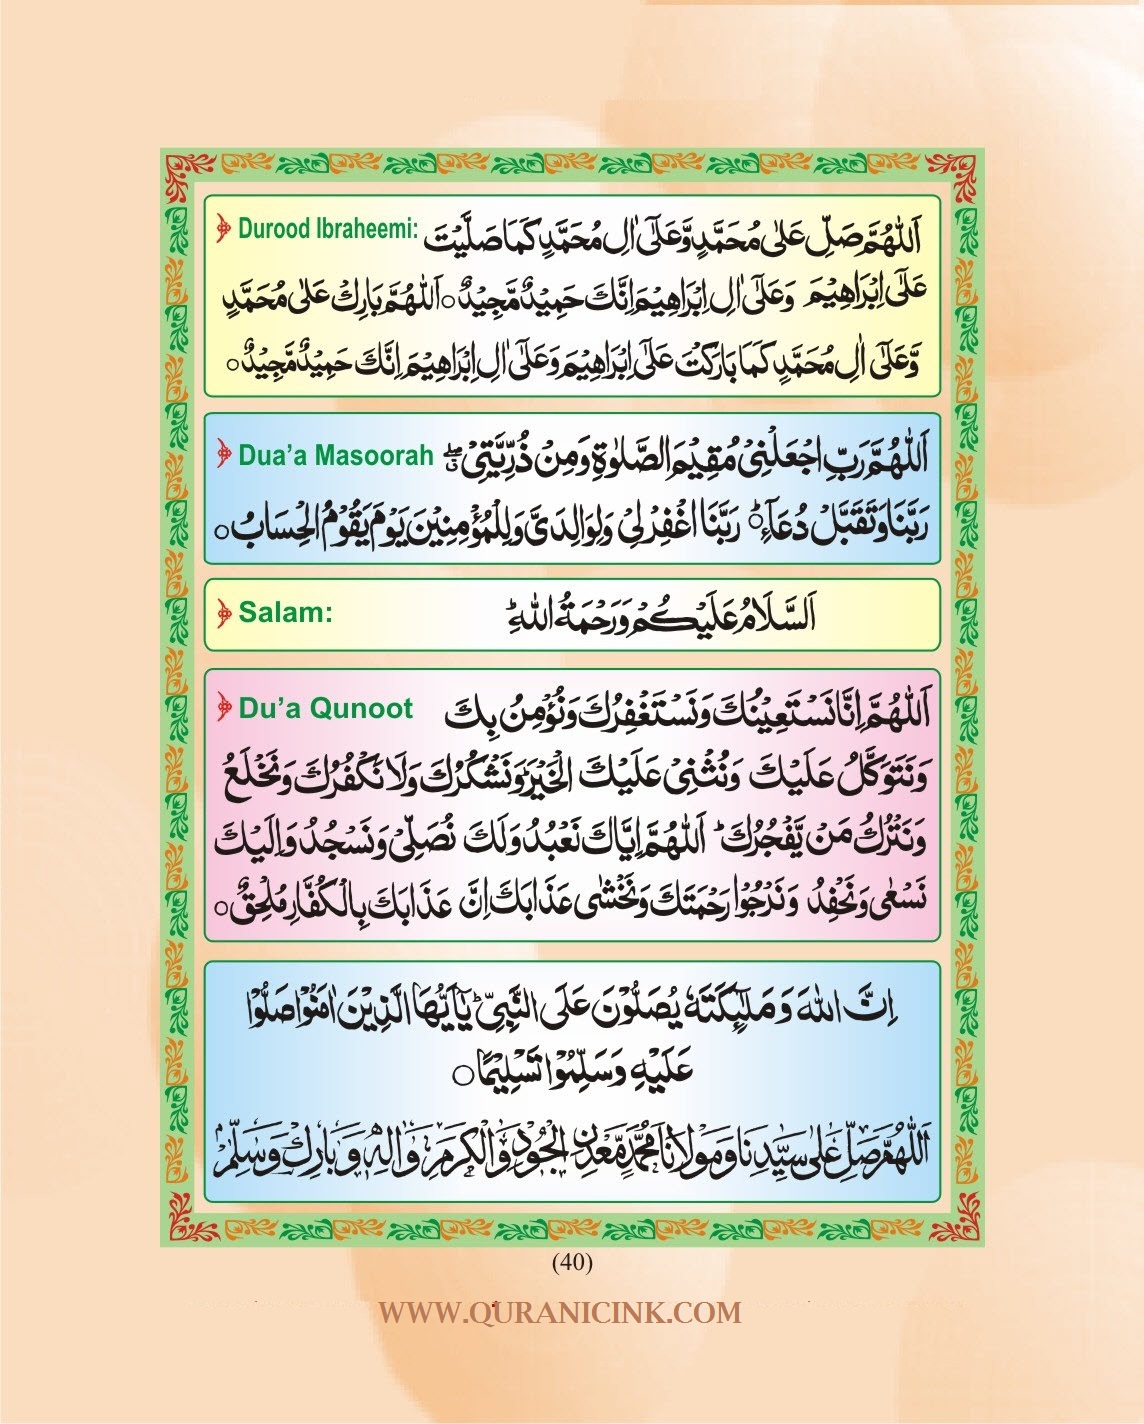 Durood Ibraheemi: اَللّٰهُمَّ صَلِّ عَلٰى مُحَمَّدٍ وَّعَلٰٓى اٰلِ مُحَمَّدٍ كَمَا صَلَّيْتَ
عَلٰٓى اِبْرَاهِيْمَ وَعَلٰٓى اٰلِ اِبْرَاهِيْمَ اِنَّكَ حَمِيْدٌ مَّجِيْدٌ○ اَللّٰهُمَّ بَارِكْ عَلٰى مُحَمَّدٍ
وَّعَلٰٓى اٰلِ مُحَمَّدٍ كَمَا بَارَكْتَ عَلٰٓى اِبْرَاهِيْمَ وَعَلٰٓى اٰلِ اِبْرَاهِيْمَ اِنَّكَ حَمِيْدٌ مَّجِيْدٌ○
Dua’a Masoorah اَللّٰهُمَّ رَبِّ اجْعَلْنِىْ مُقِيْمَ الصَّلٰوةِ وَمِنْ ذُرِّيَّتِىْ ۖق
رَبَّنَا وَتَقَبَّلْ دُعَآءِ ؕ رَبَّنَا اغْفِرْ لِىْ وَلِوَالِدَىَّ وَلِلْمُؤْمِنِيْنَ يَوْمَ يَقُوْمُ الْحِسَابُ○
Salam: اَلسَّلَامُ عَلَيْكُمْ وَرَحْمَةُ اللّٰهِ ؕ
Du’a Qunoot اَللّٰهُمَّ اِنَّا نَسْتَعِيْنُكَ وَنَسْتَغْفِرُكَ وَنُؤْمِنُ بِكَ
وَنَتَوَكَّلُ عَلَيْكَ وَنُثْنِىْ عَلَيْكَ الْخَيْرَ وَنَشْكُرُكَ وَلَا نَكْفُرُكَ وَنَخْلَعُ
وَنَتْرُكُ مَنْ يَّفْجُرُكَ ؕ اَللّٰهُمَّ اِيَّاكَ نَعْبُدُ وَلَكَ نُصَلِّىْ وَنَسْجُدُ وَاِلَيْكَ
نَسْعٰى وَنَحْفِدُ وَنَرْجُوْا رَحْمَتَكَ وَنَخْشٰى عَذَابَكَ اِنَّ عَذَابَكَ بِالْكُفَّارِ مُلْحِقٌ○
اِنَّ اللّٰهَ وَمَلٰٓئِكَتَهٗ يُصَلُّوْنَ عَلَى النَّبِىِّ ؕ يٰٓاَيُّهَا الَّذِيْنَ اٰمَنُوْا صَلُّوْا
عَلَيْهِ وَسَلِّمُوْا تَسْلِيْمًا○
اَللّٰهُمَّ صَلِّ عَلٰى سَيِّدِنَا وَمَوْلَانَا مُحَمَّدٍ مَّعْدِنِ الْجُوْدِ وَالْكَرَمِ وَاٰلِهٖ وَبَارِكْ وَسَلِّمْ
(40)
WWW.QURANICINK.COM